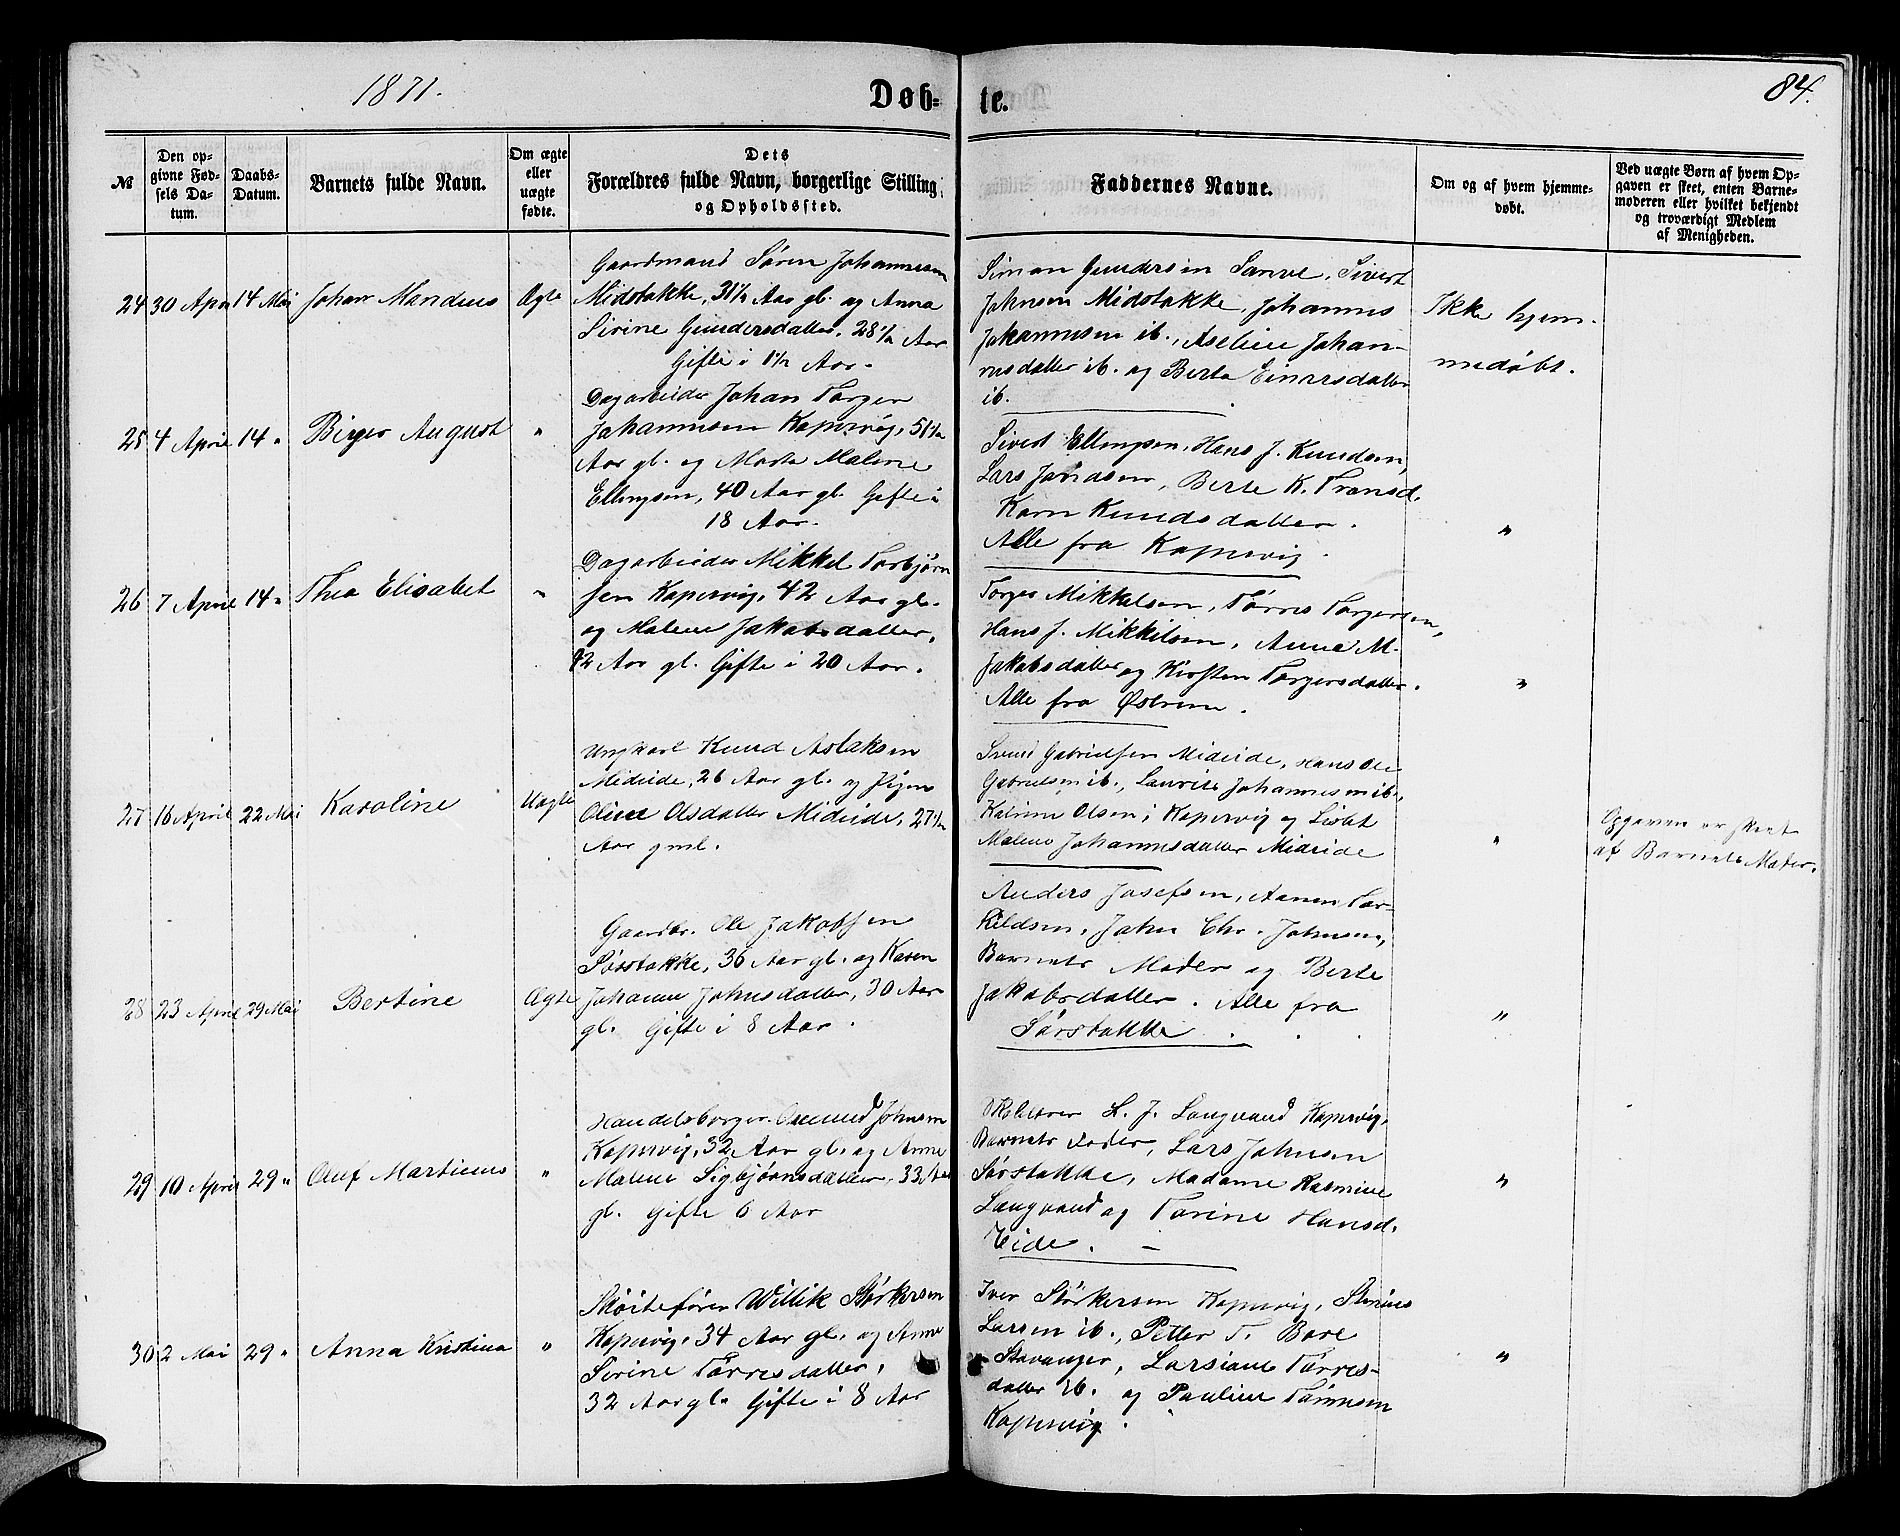 1871.
Døb-
te.
84.
№
Den op-
givne Fød-
sels Da-
tum.
Daabs-
Datum.
Barnets fulde Navn.
Om ægte
eller
uægte
fødte.
Dets
Forældres fulde Navn, borgerlige Stilling
og Opholdssted.
Faddernes Navne.
Om og af hvem hjemme-
døbt.
Ved uægte Børn af hvem Op-
gaven er skeet, enten Barne-
moderen eller hvilket bekjendt
og troværdigt Medlem
af Menigheden.
24 30 April 14 Mai Johan Mandeus Ægte
Gaardmand Søren Johannesen
Midstokke, 31½ Aar gl. og Anna
Sirine Gundersdatter, 28½ Aar
Gifte i 1½ Aar.
Simon Gundersen Sanve, Sivert
Johnsen Midstokke, Johannes
Johannesen ib., Aseline Johan-
nesdatter ib. og Berta Einersdatter
ib.
Ikke hjem-
medøbt.
25 4 April 14 " Birger August "
Dagarbeider Johan Torger
Johannesen Kopervig, 51½
Aar gl. og Marta Malene
Ellingsen, 40 Aar gl. Gifte i
18 Aar.
Sivert Ellingsen, Hans J. Knudsen,
Lars, Berte K. Transd.
Karn Knudsdatter.
Alle fra Kopervig.
"
26 7 April 14 " Thea Elisabet "
Dagarbeider Mikkel Torbjørn
sen Kopervig, 42 Aar gl.
og Malene Jakobsdatter,
42 Aar gl. Gifte i 20 Aar.
Torger Mikkelsen, Tørres Torgersen,
Hans J. Mikkelsen, Anne M.
Jakobsdatter og Kirsten Torgersdatter.
Alle fra Østrem.
"
27 16 April 22 Mai Karoline Uægte
Ungkarl Knud Aslaksen
Mideide, 26 Aar gl. og Pigen
Oline Olsdatter Mideide, 27½
Aar gml.
Svend Gabrielsen Mideide, Hans Ole
Gabrielsen ib., Laurits Johannesen ib.,
Katrine Olsen i Kopervig og Lisbet
Malene Johannesdatter Mideide
"
Opgaven er skeet
af Barnets Moder.
28 23 April 29 Mai Bertine Ægte
Gaardbr. Ole Jakobsen
Sørstokke, 36 Aar gl. og Karen
Johanne Johnsdatter, 30 Aar
gl. Gifte i 8 Aar.
Anders Josefsen, Aanen Tor-
kildsen, John Chr. Johnsen,
Barnets Moder og Berte
Jakobsdatter. Alle fra
Sørstokke.
"
29 10 April 29 " Oluf Martinus "
Handelsborger Osmund Johnsen
Kopervig, 32 Aar gl. og Anne
Malene Sigbjørnsdatter, 33 Aar
gl. gifte 6 Aar
L. J. Langvand Kopervig,
Barnets Fader, Lars Johnsen
Sørstokke, Madame Rasmine
Langvand og Torine Hansd.
Eide. –
"
30 2 Mai 29 " Anna Kristina "
Skøitefører Willik Størkersen
Kopervig, 34 Aar gl. og Anne
Serine Tørresdatter,
32 Aar gl. Gifte i 8 Aar
Iver Størkersen Kopervig, Stenius
Larsen ib., Petter T. Bore
Stavanger, Larsiane Tørres-
datter ib. og Pauline Tønnesen
Kopervig.
"